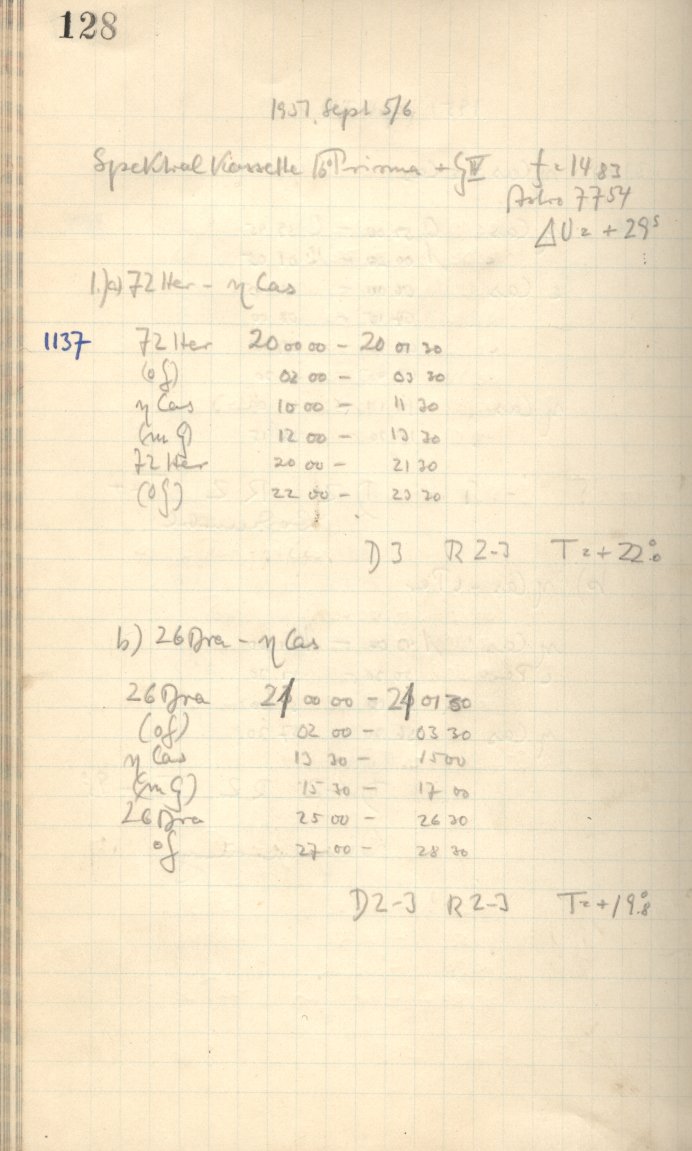 128
1957, Sept 5/6
Spektral Kassette 6° Prisma + G IV f = 14 83
Astro 7754
ΔU = + 29ˢ
1.) a) 72 Her - η Cas
1137 72 Her 20 00 00 - 20 01 30
(of) 02 00 - 03 30
η Cas 10 00 - 11 30
(m G) 12 00 - 13 30
72 Her 20 00 - 21 30
(of) 22 00 - 23 30
D 3 R 2-3 T = + 22°.0
b) 26 Dra - η Cas
26 Dra 21 00 00 - 21 01 30
(of) 02 00 - 03 30
η Cas 13 30 - 15 00
(m G) 15 30 - 17 00
26 Dra 25 00 - 26 30
of 27 00 - 28 30
D 2-3 R 2-3 T = + 19°.8